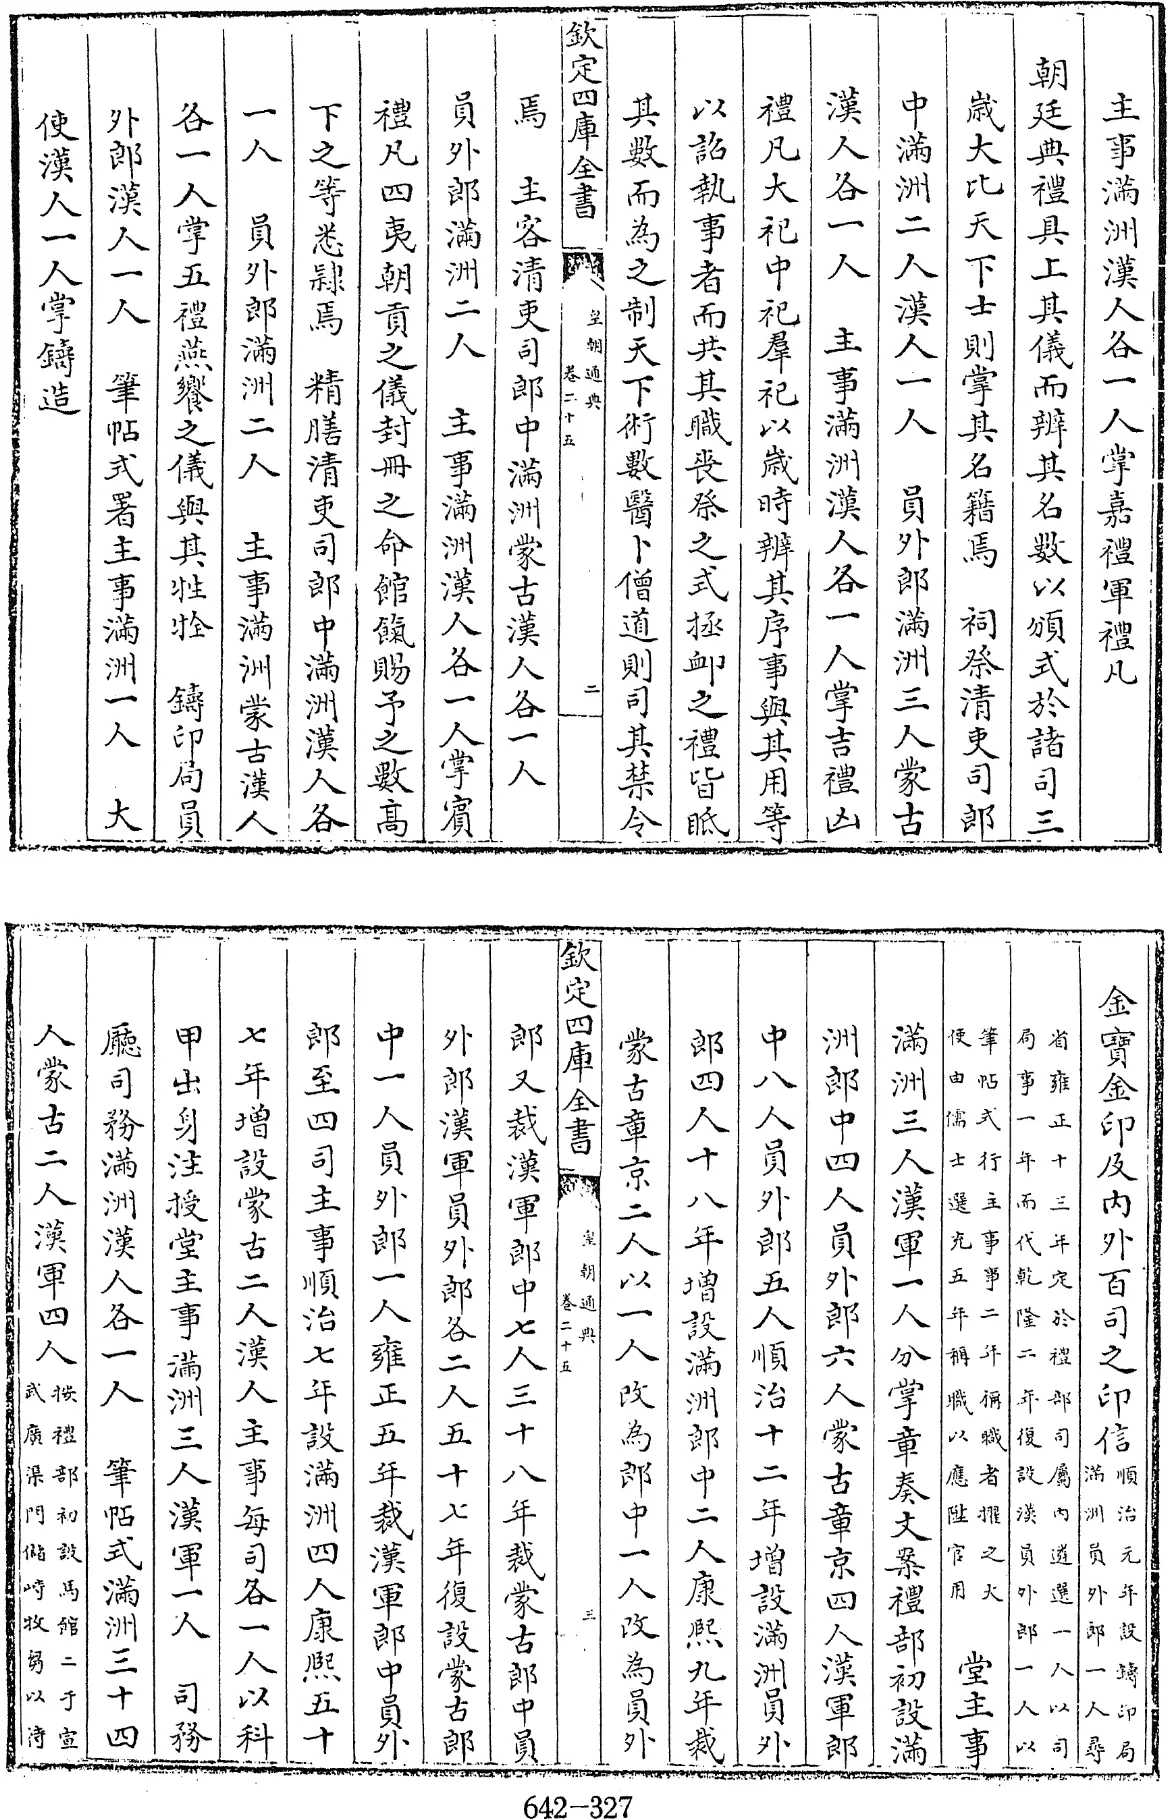 主事滿洲漢人各一人掌嘉禮軍禮凡
朝廷典禮具上其儀而辨其名數以頒式於諸司三
歲大比天下士則掌其名籍焉　祠祭清吏司郎
中滿洲二人漢人一人　員外郎滿洲三人蒙古
漢人各一人　主事滿洲漢人各一人掌吉禮凶
禮凡大祀中祀羣祀以歲時辨其序事與其用等
以詔執事者而共其職喪祭之式拯卹之禮皆眡
其數而為之制天下術數醫卜僧道則司其禁令
欽定四庫全書
皇朝通典
卷二十五
二
焉　主客清吏司郎中滿洲蒙古漢人各一人
員外郎滿洲二人　主事滿洲漢人各一人掌賓
禮凡四夷朝貢之儀封冊之命館餼賜予之數高
下之等悉隸焉　精膳清吏司郎中滿洲漢人各
一人　員外郎滿洲二人　主事滿洲蒙古漢人
各一人掌五禮燕饗之儀與其牲牷　鑄印局員
外郎漢人一人　筆帖式署主事滿洲一人　大
使漢人一人掌鑄造
金寶金印及內外百司之印信
順治元年設鑄印局
滿洲員外郎一人尋
省雍正十三年定於禮部司屬內遴選一人以司
局事一年而代乾隆二年復設漢員外郎一人以
筆帖式行主事事二年稱職者擢之大
使由儒士選充五年稱職以應陞官用
堂主事
滿洲三人漢軍一人分掌章奏文案禮部初設滿
洲郎中四人員外郎六人蒙古章京四人漢軍郎
中八人員外郎五人順治十二年增設滿洲員外
郎四人十八年增設滿洲郎中二人康熙九年裁
蒙古章京二人以一人改為郎中一人改為員外
欽定四庫全書
皇朝通典
卷二十五
三
郎又裁漢軍郎中七人三十八年裁蒙古郎中員
外郎漢軍員外郎各二人五十七年復設蒙古郎
中一人員外郎一人雍正五年裁漢軍郎中員外
郎至四司主事順治七年設滿洲四人康熙五十
七年增設蒙古二人漢人主事每司各一人以科
甲出身注授堂主事滿洲三人漢軍一人　司務
廳司務滿洲漢人各一人　筆帖式滿洲三十四
人蒙古二人漢軍四人
按禮部初設馬館二于宣
武廣渠門儲峙牧芻以待
642-327